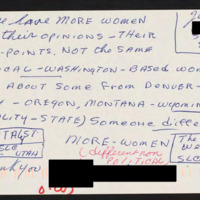 have MORE WOMEN
their OPINIONS - THEIR
-POINTS. NOT the SAME
CAL-WASHINGTON-BASED WO
ABOUT SOME FROM DENVER-
- OREGON, MONTANA-WYOMIN
LITY-STATE) SOMEONE diffe
TALST
SLC
UTAH
MORE-WOMEN
(different non
POLITICAL
The
W
SLC
ank you